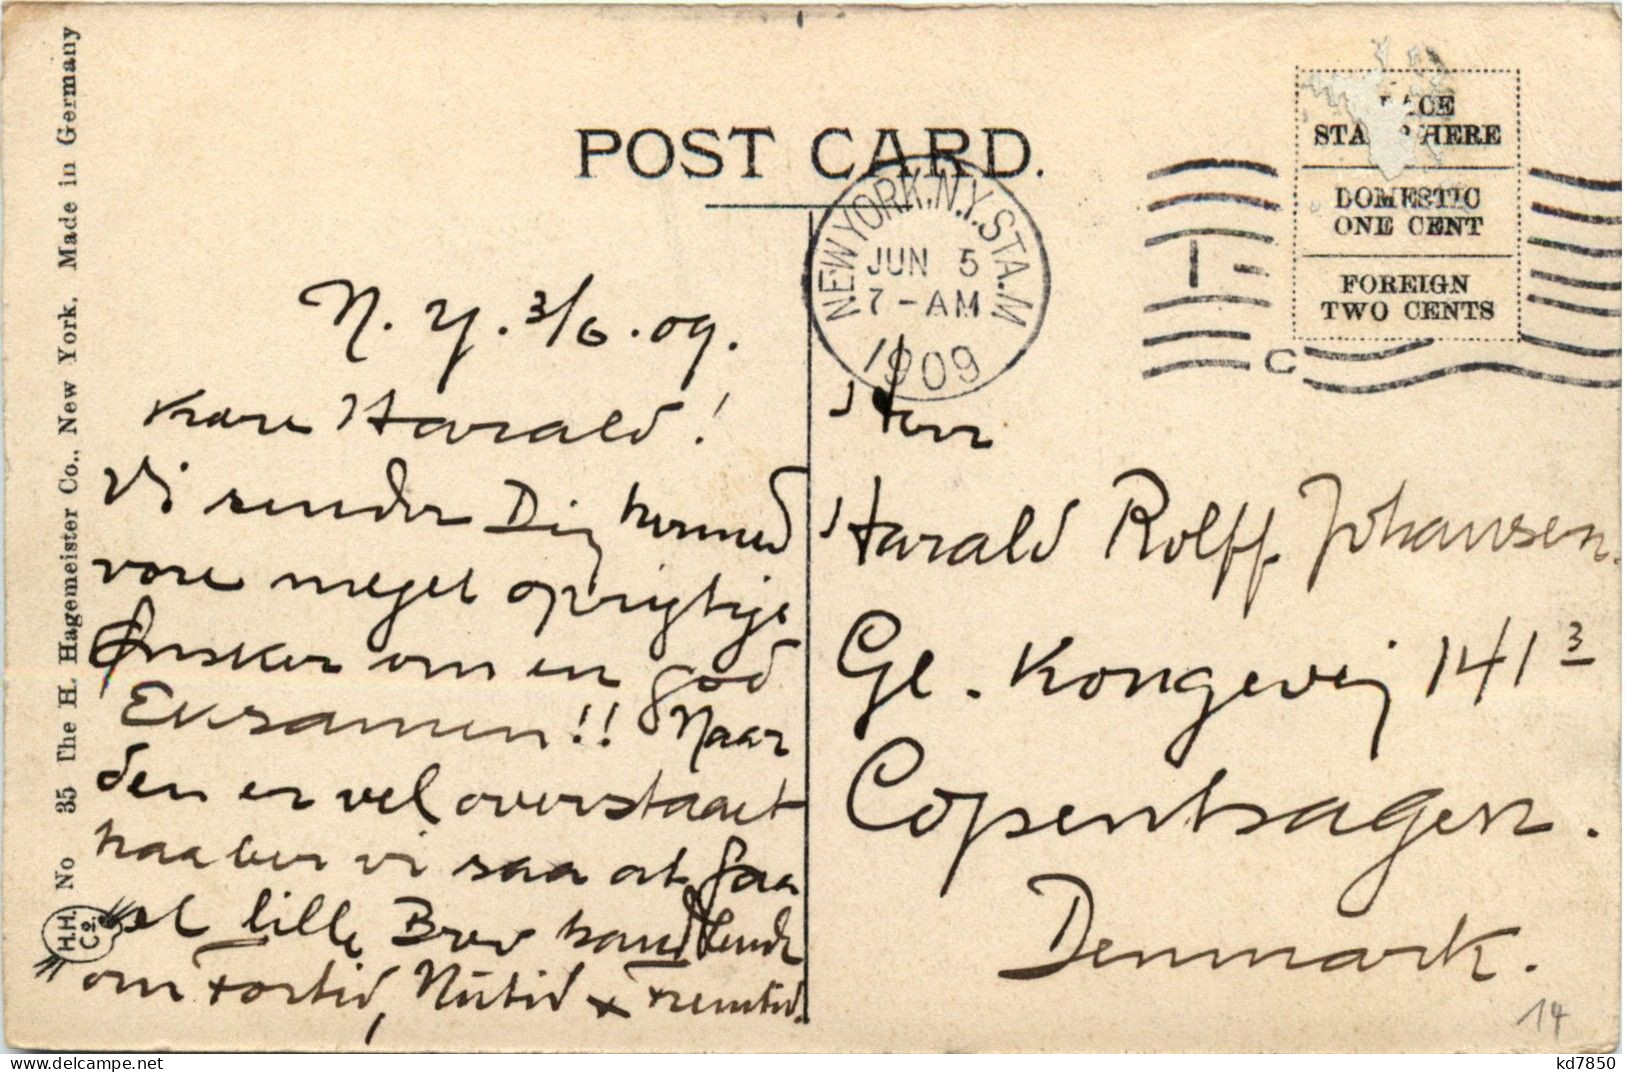 POST CARD.
NEW YORK, N.Y. STA. M
JUN 5
7-AM
1909
CE
STA HERE
DOMESTIC
ONE CENT
FOREIGN
TWO CENTS
C
No 35 The H. Hagemeister Co., New York. Made in Germany
H.H. Co.
N. Y. 3/6. 09.
Kære Harald!
Vi sender Dig hermed
vore meget oprigtige
Ønsker om en god
Eksamen!! Naar
den er vel overstaaet
haaber vi saa at faa
et lille Brev handlende
om Fortid, Nutid & Fremtid.
Herr
Harald Rolff Johansen.
Gl. Kongevej 141 3
Copenhagen.
Denmark.
14
kd7850